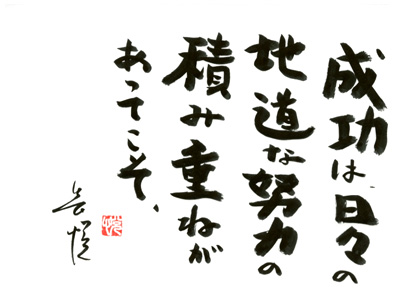 成功は、日々の
地道な努力の
積み重ねが
あってこそ、